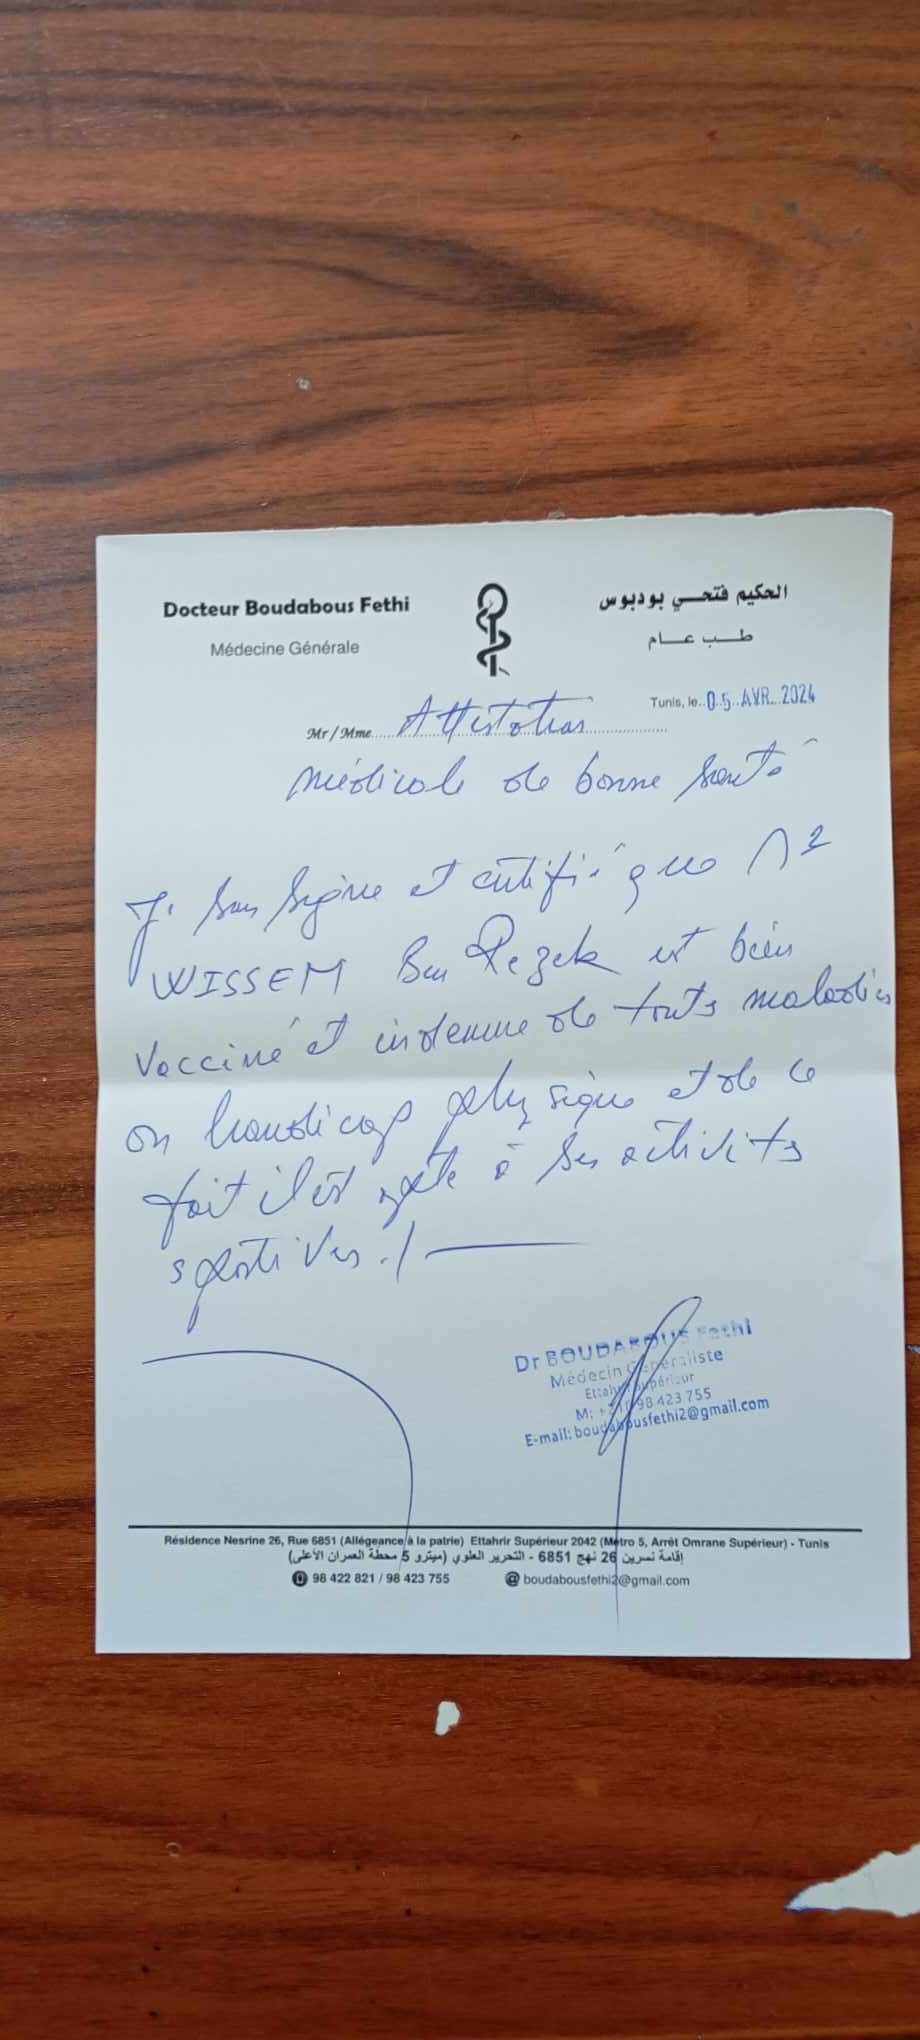 Docteur Boudabous Fethi
Médecine Générale
الحكيم فتحي بودبوس
طب عام
Tunis, le.. 05 AVR. 2024
Mr / Mme.... Attestation
médicale de bonne santé
Je sous signé et certifié que Mr
WISSEM Ben Rezek est bien
vacciné et indemne de touts maladies
ou handicap physique et de ce
fait il est apte à ses activités
sportives ./
Dr BOUDABOUS Fethi
Médecin Généraliste
Ettahrir Supérieur
M: +216 98 423 755
E-mail: boudabousfethi2@gmail.com
Résidence Nesrine 26, Rue 6851 (Allégeance à la patrie) Ettahrir Supérieur 2042 (Métro 5, Arrêt Omrane Supérieur) - Tunis
إقامة نسرين 26 نهج 6851 - التحرير العلوي (ميترو 5 محطة العمران الأعلى)
98 422 821 / 98 423 755 @ boudabousfethi2@gmail.com